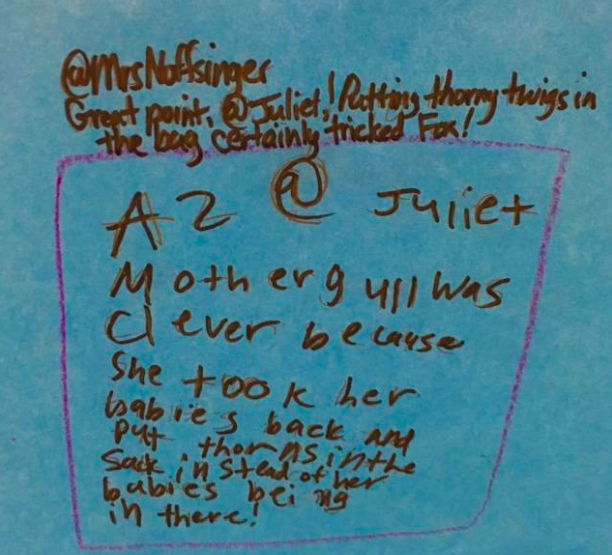 @MrsNoffsinger
Great point, @Juliet! Putting thorny twigs in
the bag certainly tricked Fox!
A2 @ Juliet
Mother gull was
clever because
she took her
babies back and
put thorns in the
sack instead of her
babies being
in there!